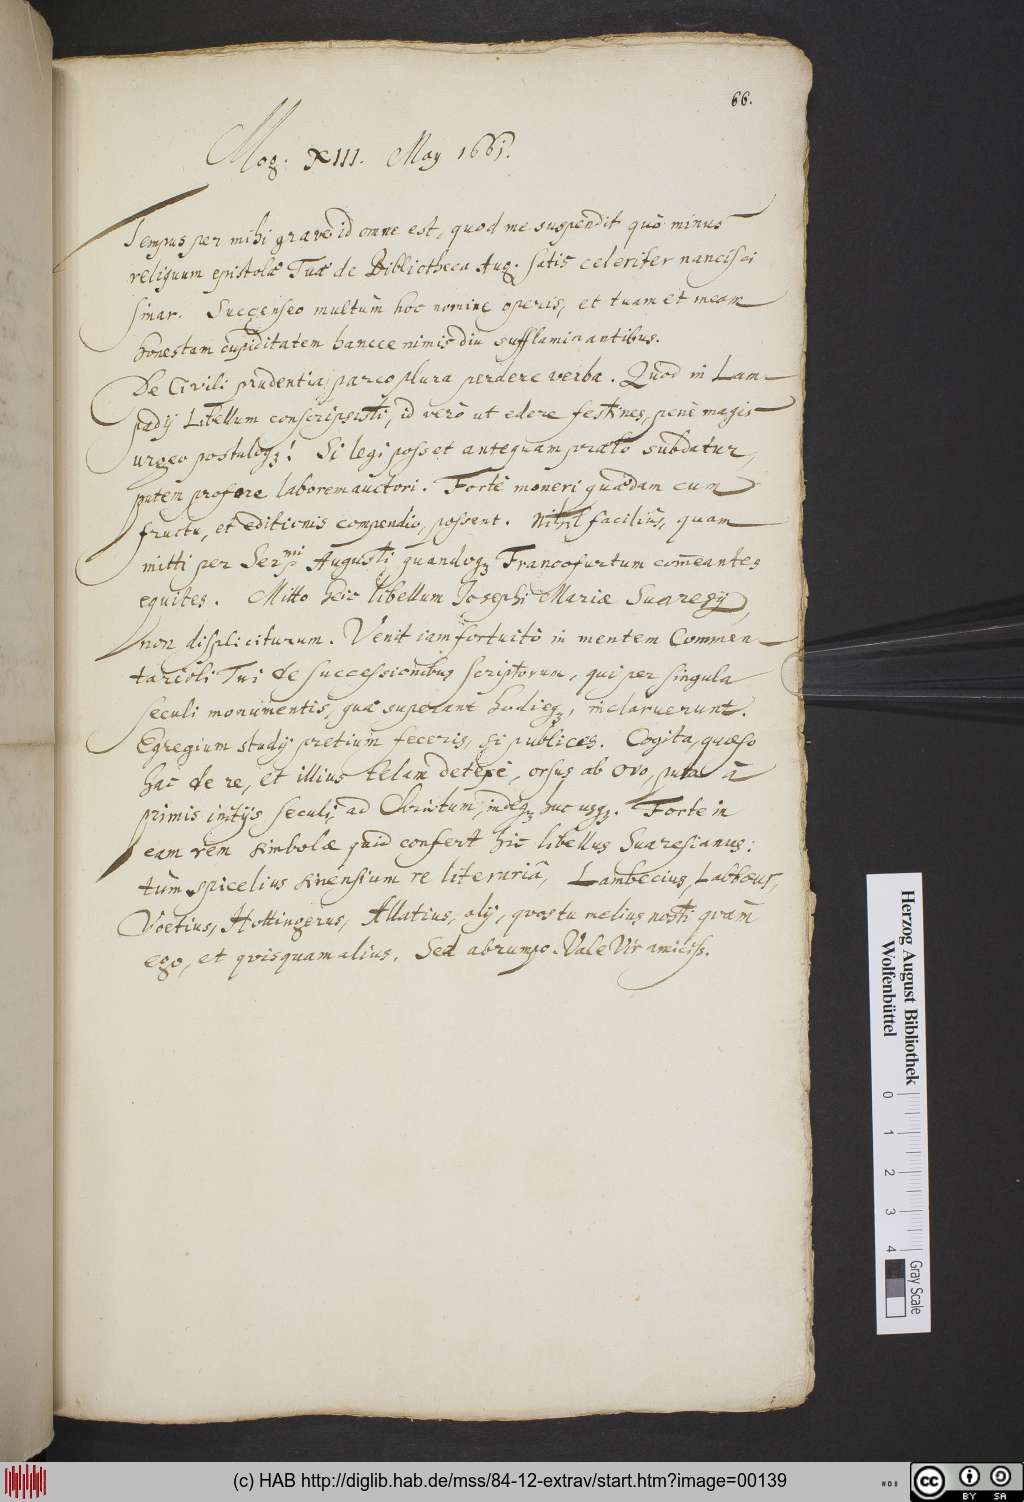 66.
Mog. XIII. May 1661.
Tempus per mihi grave id omne est, quod me suspendit quò minus
reliquum epistolæ Tuæ de Bibliotheca Aug. satis celeriter nancisci
sinar. Succenseo multùm hoc nomine operis, et tuam et meam
honestam cupiditatem hancce nimis diu sufflaminantibus.
De Civili prudentia parco plura perdere verba. Quod in Lam-
padij Libellum conscripsisti, id verò ut edere festines, penè magis
urgeo postuloqʒ! Si legi posset antequam prælo subdatur,
putem profore laborem auctori. Fortè moneri quædam cum
fructu, et editionis compendio, possent. Nihil facilius, quam
mitti per Ser.mi Augusti quandoqʒ Francofurtum com̄eantes
equites. Mitto heic libellum Josephi Mariæ Suaresij,
non displiciturum. Venit iam fortuitò in mentem Commen-
tarioli Tui de successionibus scriptorum, qui per singula
seculi monumentis, quæ superant hodieqʒ, inclaruerunt.
Egregium studij pretium feceris, si publices. Cogita, quæso
hac de re, et illius telam detexe, orsus ab ovo, puta à
primis initijs seculi ad Christum, indeqʒ huc usqʒ. Forte in
eam rem simbolæ quid confert hic libellus Suaresianus:
tùm Spicelius sinensium re literariâ, Lambecius, Labbæus,
Voetius, Hottingerus, Allatius, alij, quos tu melius nosti quàm
ego, et quisquam alius. Sed abrumpo. Vale Vir amiciss.
Herzog August Bibliothek
Wolfenbüttel
0 1 2 3 4
Gray Scale
(c) HAB http://diglib.hab.de/mss/84-12-extrav/start.htm?image=00139
WDB
cc BY SA